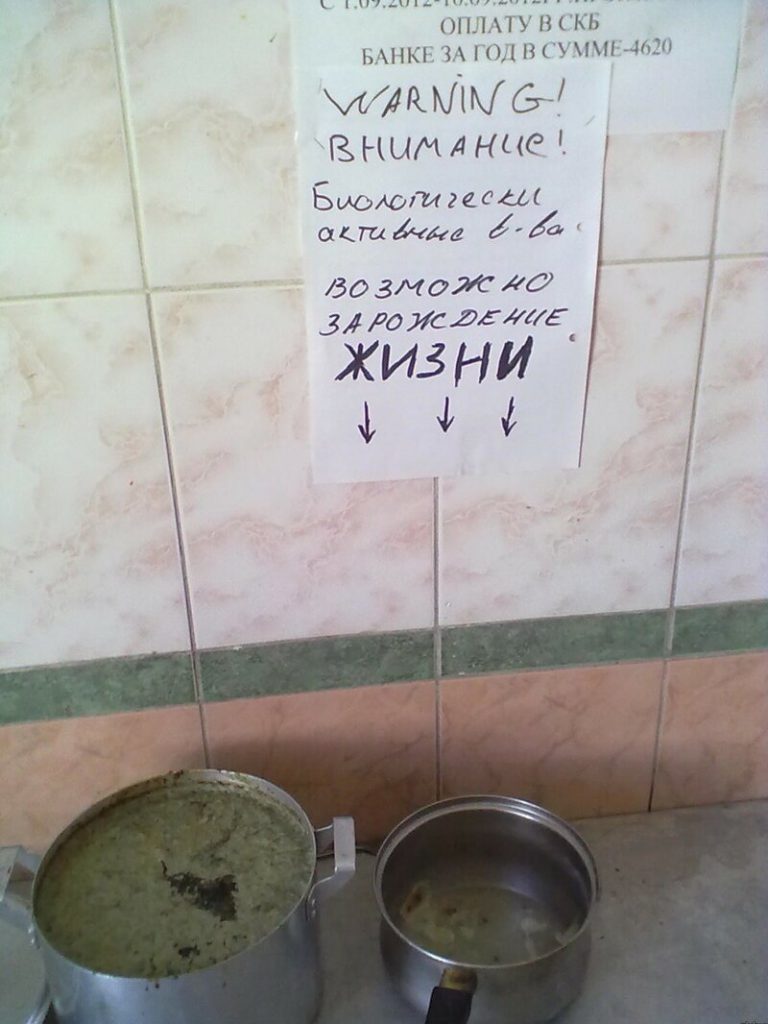 С 1.09.2012-10.09.2012г
ОПЛАТУ В СКБ
БАНКЕ ЗА ГОД В СУММЕ-4620
WARNING!
ВНИМАНИЕ!
Биологически
активные в-ва
ВОЗМОЖНО
ЗАРОЖДЕНИЕ
ЖИЗНИ